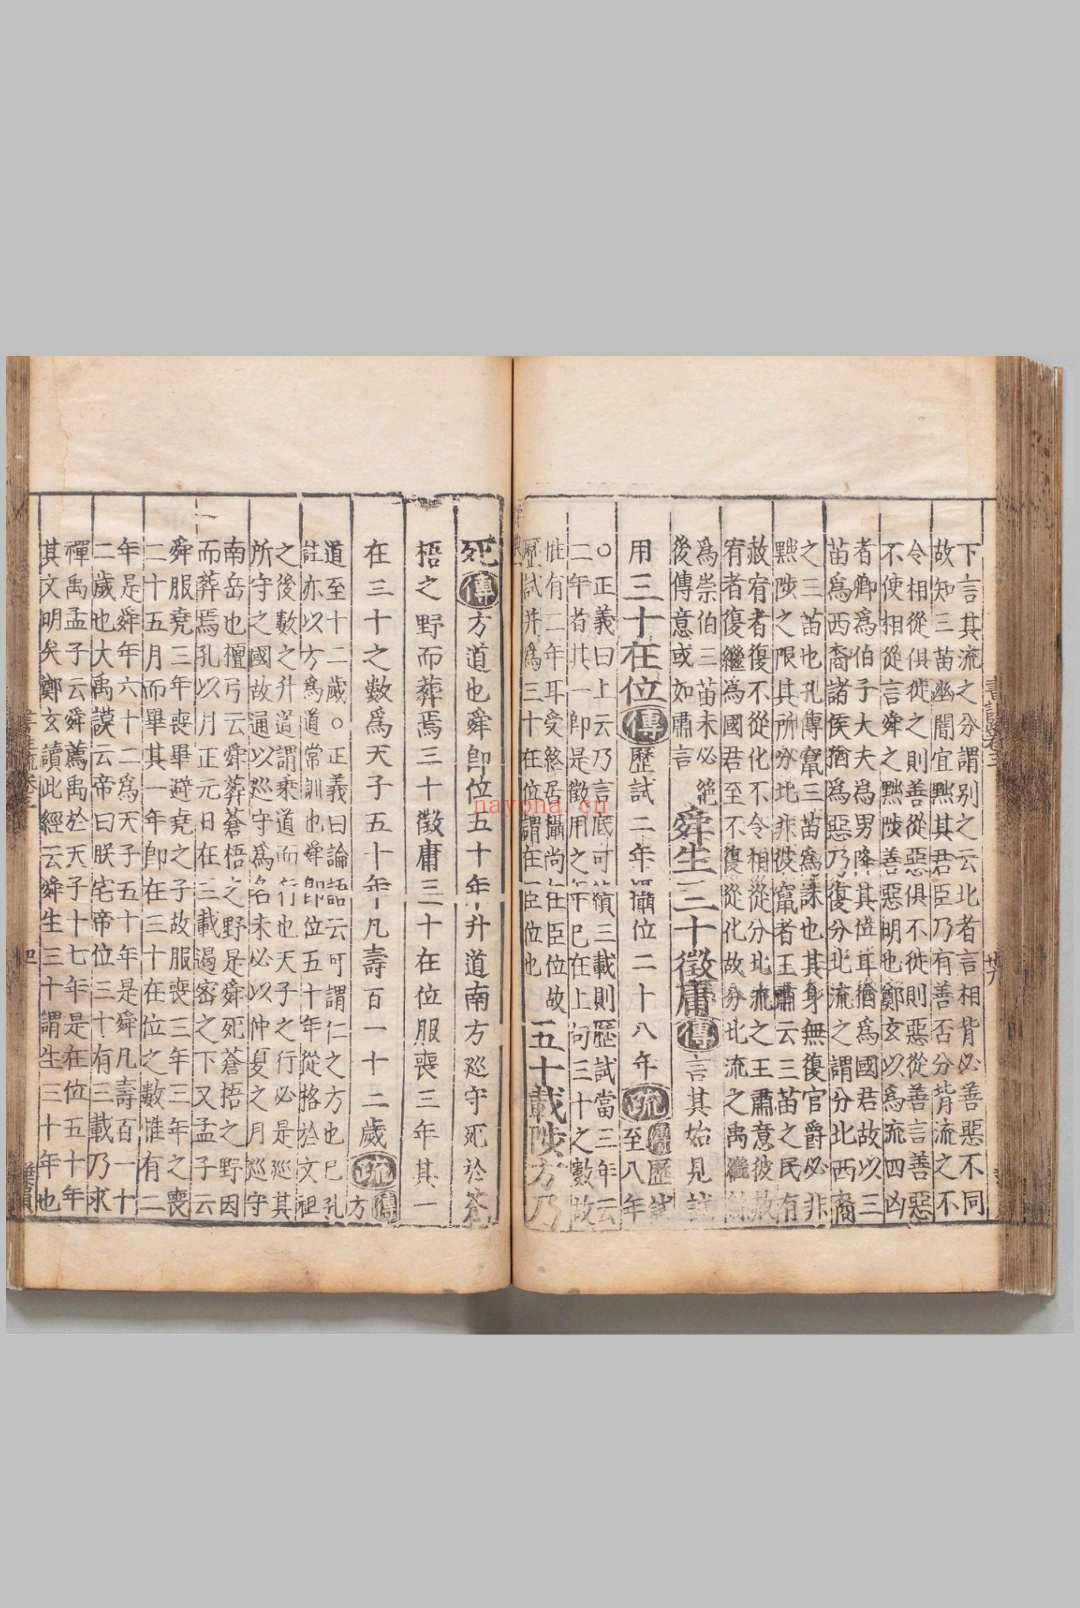 下言其流之分謂別之云北者言相背必善惡不同
故知三苗幽闇宜黜其君臣乃有善否分背流之不
令相從俱徙之則善從惡俱不徙則惡從善言善惡
不使相從言舜之黜陟善惡明也鄭玄以為流四凶
者卿為伯子大夫為男降其位耳猶為國君故以三
苗為西裔諸侯猶為惡乃復分北流之謂分北西裔
之三苗也孔傳竄三苗為誅也其身無復官爵必非
黜陟之限其所分北非彼竄者王肅云三苗之民有
赦宥者復不從化不令相從分北流之王肅意彼赦
宥者復繼為國君至不復從化故分北流之禹繼鯀
為崇伯三苗未必絕
後傳意或如肅言
舜生三十徵庸
傳
言其始見試
用三十在位
傳
歷試二年攝位二十八年
疏
傳歷試
至八年
○正義曰上云乃言厎可績三載則歷試當三年云
二年者其一即是徵用之年已在上句三十之數故
惟有二年耳受終居攝尚在臣位故
歷試并為三十在位謂在臣位也
五十載陟方乃
死
傳
方道也舜即位五十年升道南方巡守死於蒼
梧之野而葬焉三十徵庸三十在位服喪三年其一
在三十之數為天子五十年凡壽百一十二歲
疏
傳方
道至十二歲○正義曰論語云可謂仁之方也已孔
註亦以方為道常訓也舜即位五十年從格於文祖
之後數之升道謂乘道而行也天子之行必是巡其
所守之國故通以巡守為名未必以仲夏之月巡守
南岳也檀弓云舜葬蒼梧之野是舜死蒼梧之野因
而葬焉孔以月正元日在三載遏密之下又孟子云
舜服堯三年喪畢避堯之子故服喪三年三年之喪
二十五月而畢其一年即在三十在位之數惟有二
年是舜年六十二為天子五十年是舜凡壽百一十
二歲也大禹謨云帝曰朕宅帝位三十有三載乃求
禪禹孟子云舜薦禹於天子十七年是在位五十年
其文明矣鄭玄讀此經云舜生三十謂生三十年也
nayona.cn